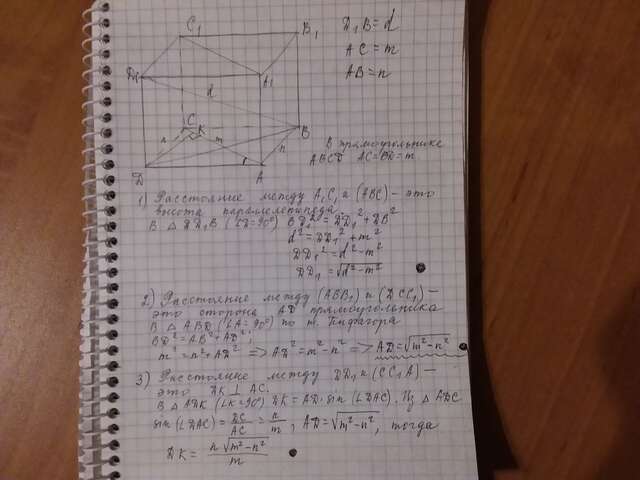 C₁
B₁
D₁B = d
AC = m
AB = n
D₁
A₁
d
C
K
B
n
m
n
D
A
В прямоугольнике
ABCD AC=BD=m
1) Расстояние между A₁C₁ и (ABC) – это
высота параллелепипеда.
В △ DD₁B (∠D=90°) BD₁² = DD₁² + DB²
d² = DD₁² + m²
DD₁² = d² – m²
DD₁ = √d² – m²
2) Расстояние между (ABB₁) и (DCC₁) –
это сторона AD прямоугольника
В △ ABD (∠A=90°) по т. Пифагора
BD² = AB² + AD²;
m² = n² + AD² => AD² = m² – n² => AD = √m² – n²
3) Расстояние между DD₁ и (CC₁A) –
это DK ⊥ AC.
В △ ADK (∠K=90°) DK = AD · sin (∠DAC). Из △ ADC
sin (∠DAC) = DC/AC = n/m; AD = √m² – n², тогда
DK = n√m² – n²/m